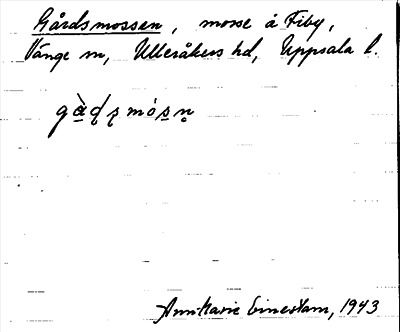 Gårdsmossen, mosse å Fiby,
Vänge sn, Ulleråkers hd, Uppsala l.
gàɖʂmósn̥
Ann-Marie Einestam, 1943